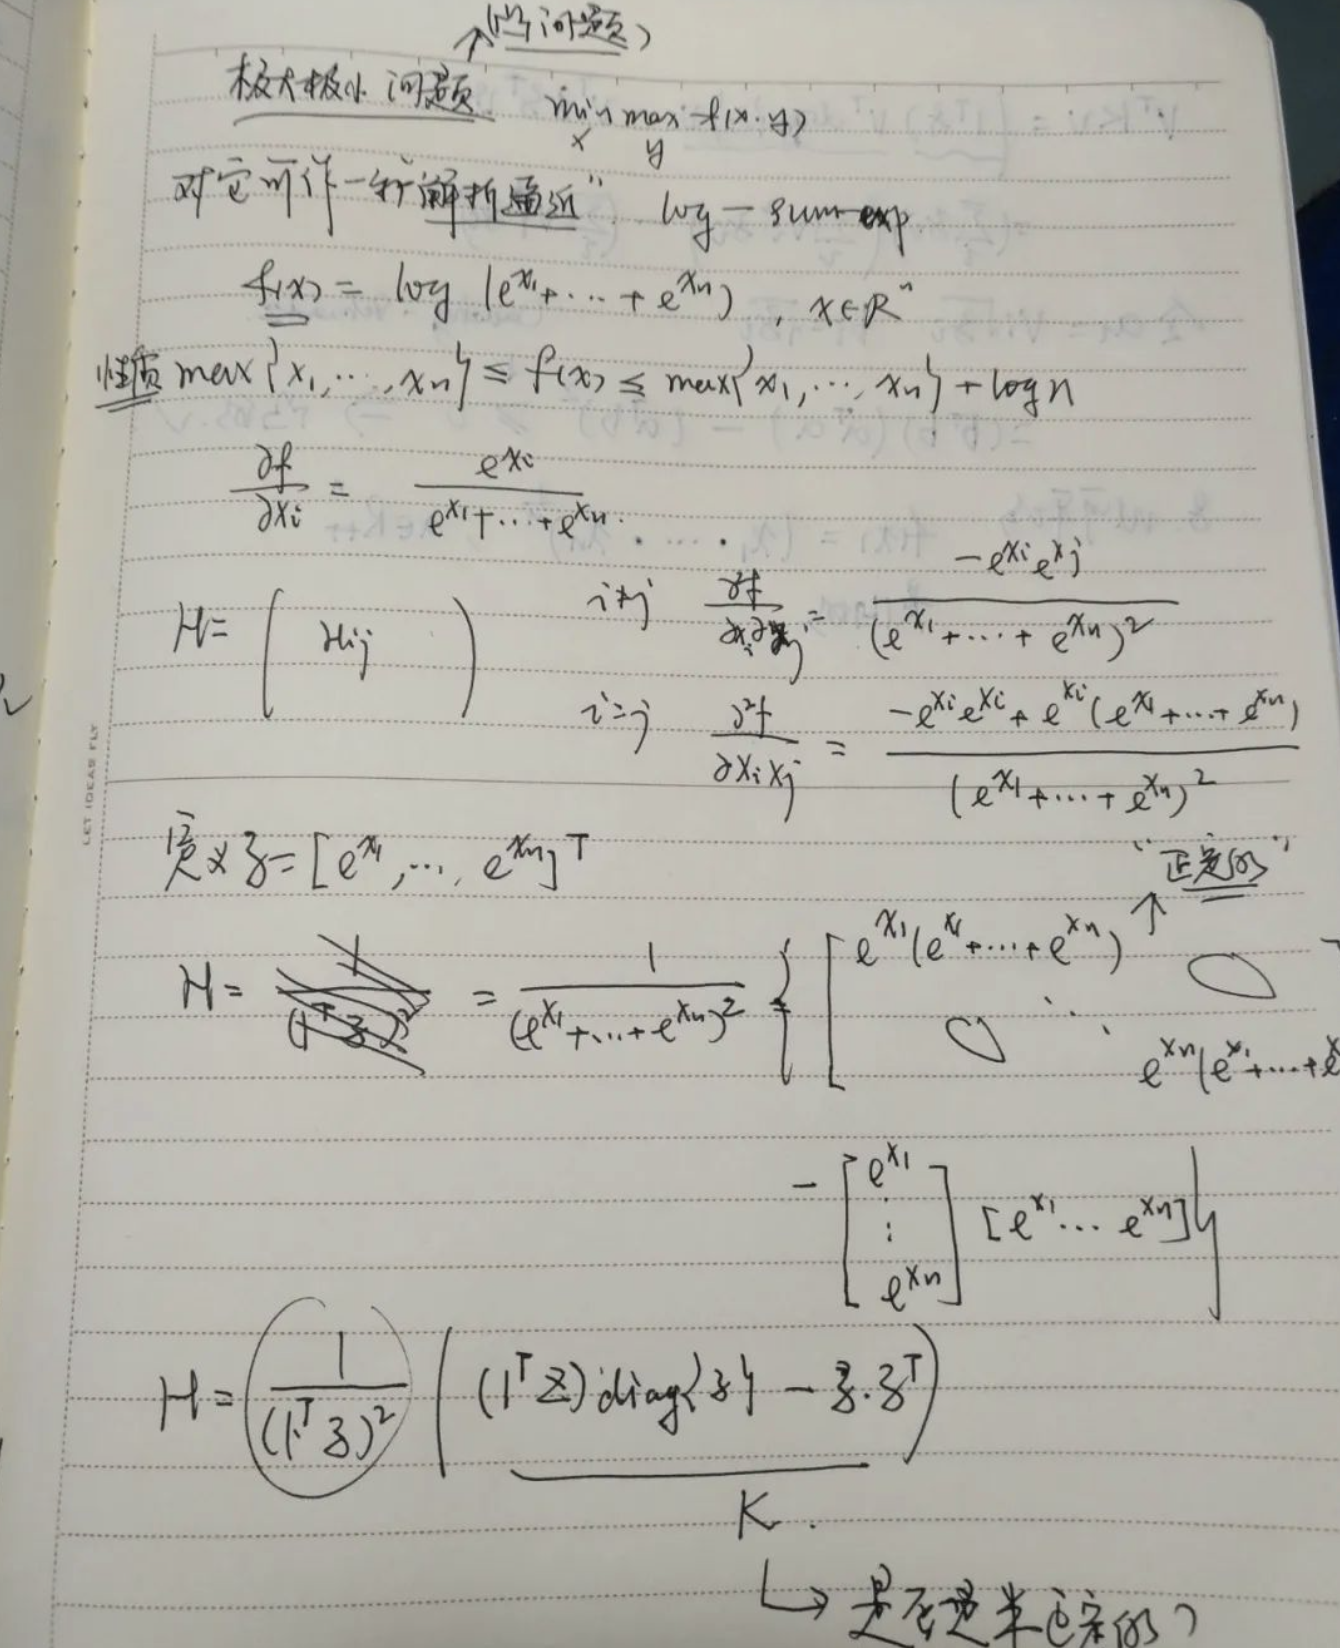 (凸问题)
极大极小问题 min max f(x,y)
x y
对它可作一种"解析逼近" log-sum-exp
f(x) = log (e^{x_1}+...+e^{x_n}), x∈R^n
性质 max{x_1,...,x_n} ≤ f(x) ≤ max{x_1,...,x_n} + log n
∂f/∂x_i = e^{x_i} / (e^{x_1}+...+e^{x_n}).
i≠j ∂²f/∂x_i∂x_j = -e^{x_i}e^{x_j} / (e^{x_1}+...+e^{x_n})^2
H = ( H_{ij} )
i=j ∂²f/∂x_i x_j = (-e^{x_i}e^{x_i} + e^{x_i}(e^{x_1}+...+e^{x_n})) / (e^{x_1}+...+e^{x_n})^2
LET IDEAS FLY
定义 z = [e^{x_1},..., e^{x_n}]^T
"正定的"
H = 1/(1^T z)^2 = 1/(e^{x_1}+...+e^{x_n})^2 { [ e^{x_1}(e^{x_1}+...+e^{x_n}) 0
0 ⋱ e^{x_n}(e^{x_1}+...+e^x
- [e^{x_1} ⋮ e^{x_n}] [e^{x_1} ... e^{x_n}] }
H = 1/(1^T z)^2 ( (1^T z) diag{z} - z·z^T )
K.
↳ 是否是半正定的?